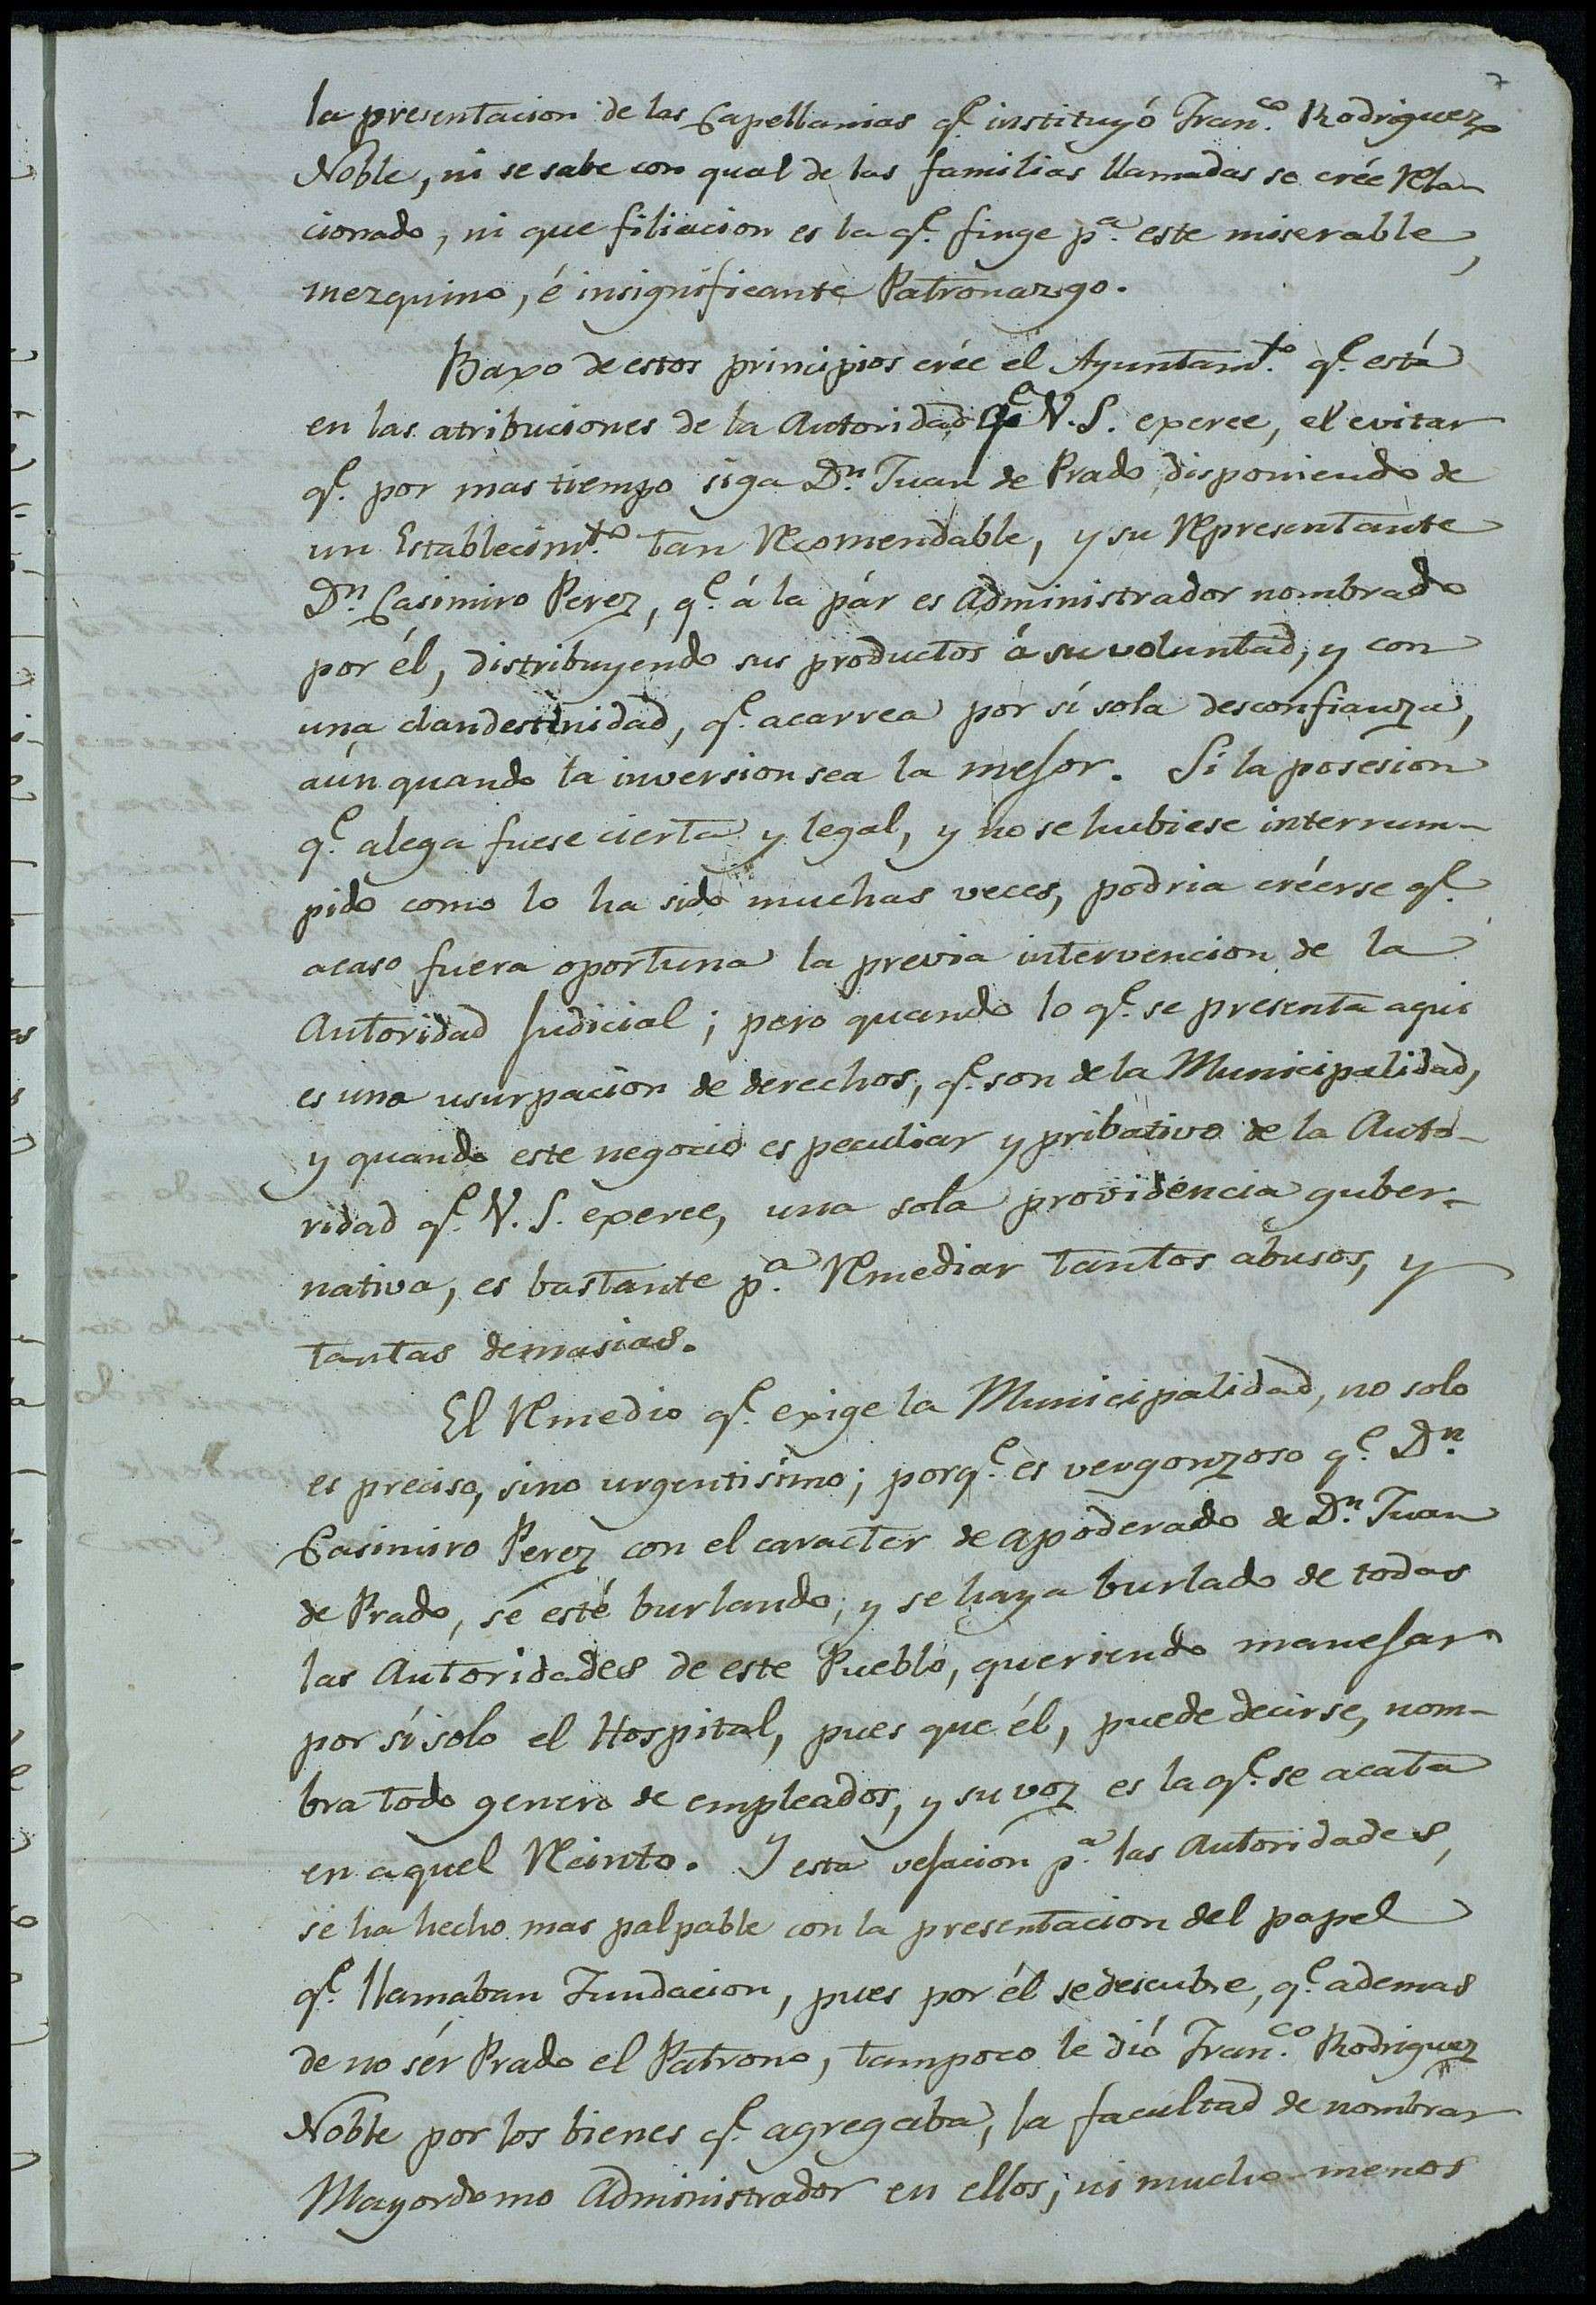 7
la presentacion de las Capellanias q.e instituyó Fran.co Rodriguez
Noble, ni se sabe con qual de las familias llamadas se crée rela-
cionado, ni que filiacion es la q.e finge p.a este miserable,
mezquino, é insignificante Patronazgo.
Baxo de estos principios crée el Ayuntam.to q.e está
en las atribuciones de la Autoridad q.e V. S. exerce, el evitar
q.e por mas tiempo siga D.n Juan de Prado disponiendo de
un Establecim.to tan recomendable, y su representante
D.n Casimiro Perez, q.e á la pár es Administrador nombrado
por él, distribuyendo sus productos á su voluntad, y con
una clandestinidad, q.e acarrea por sí sola desconfianza,
aún quando la inversion sea la mejor. Si la posesion
q.e alega fuese cierta y legal, y no se hubiese interrum-
pido como lo ha sido muchas veces, podria créerse q.e
acaso fuera oportuna la previa intervencion de la
Autoridad Judicial; pero quando lo q.e se presenta aqui
es una usurpacion de derechos, q.e son de la Municipalidad,
y quando este negocio es peculiar y pribativo de la Auto-
ridad q.e V. S. exerce, una sola providencia guber-
nativa, es bastante p.a remediar tantos abusos, y
tantas demasias.
El remedio q.e exige la Municipalidad, no solo
es preciso, sino urgentisimo; porq.e es vergonzoso q.e D.n
Casimiro Perez con el caracter de apoderado de D.n Juan
de Prado, se esté burlando, y se haya burlado de todas
las Autoridades de este Pueblo, queriendo manejar
por sí solo el Hospital, pues que él, puede decirse, nom-
bra todo genero de empleados, y su voz es la q.e se acata
en aquel recinto. Y esta vejacion p.a las Autoridades,
se ha hecho mas palpable con la presentacion del papel
q.e llamaban Fundacion, pues por él se descubre, q.e ademas
de no sér Prado el Patrono, tampoco le dió Fran.co Rodriguez
Noble por los bienes q.e agregaba, la facultad de nombrar
Mayordomo Administrador en ellos; ni mucho menos